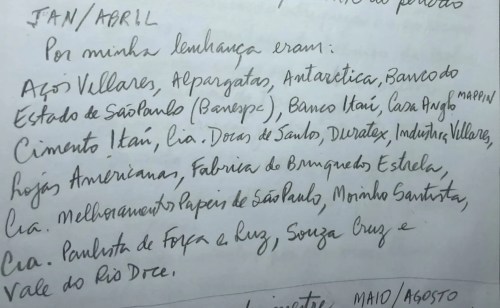 do período
JAN/ABRIL
Por minha lembrança eram:
Aços Villares, Alpargatas, Antarctica, Banco do
Estado de São Paulo (Banespa), Banco Itaú, Casa Anglo MAPPIN
Cimento Itaú, Cia. Docas de Santos, Duratex, Industrias Villares,
Lojas Américanas, Fabrica de Brinquedos Estrela,
Cia. Melhoramentos Papeis de São Paulo, Moinho Santista,
Cia. Paulista de Força e Luz, Souza Cruz e
Vale do Rio Doce.
MAIO/AGOSTO